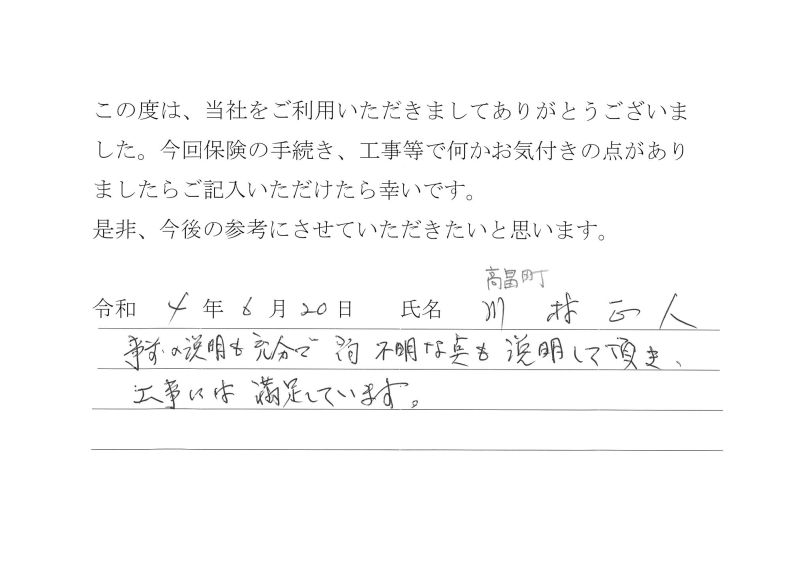 この度は、当社をご利用いただきましてありがとうございま
した。今回保険の手続き、工事等で何かお気付きの点があり
ましたらご記入いただけたら幸いです。
是非、今後の参考にさせていただきたいと思います。
高畠町
令和 4 年 6 月 20 日 氏名 川村 正人
の説明も充分で 不明な点も説明して頂き、
工事には満足しています。